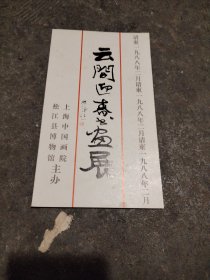 请柬一九八八年二月请柬一九八八年二月请柬一九八八年二月
云间迎春书画展
上海中国画院
松江县博物馆
主办